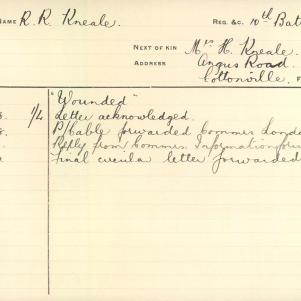 NAME R. R. Kneale. REG. &C. 10th Bat
NEXT OF KIN Mrs H. Kneale.
ADDRESS Angus Road.
Cottonville,
"Wounded"
1/2 Letter acknowledged.
P/Cable forwarded Commr London
Reply from Commr. Information forw
Final circular letter forwarded